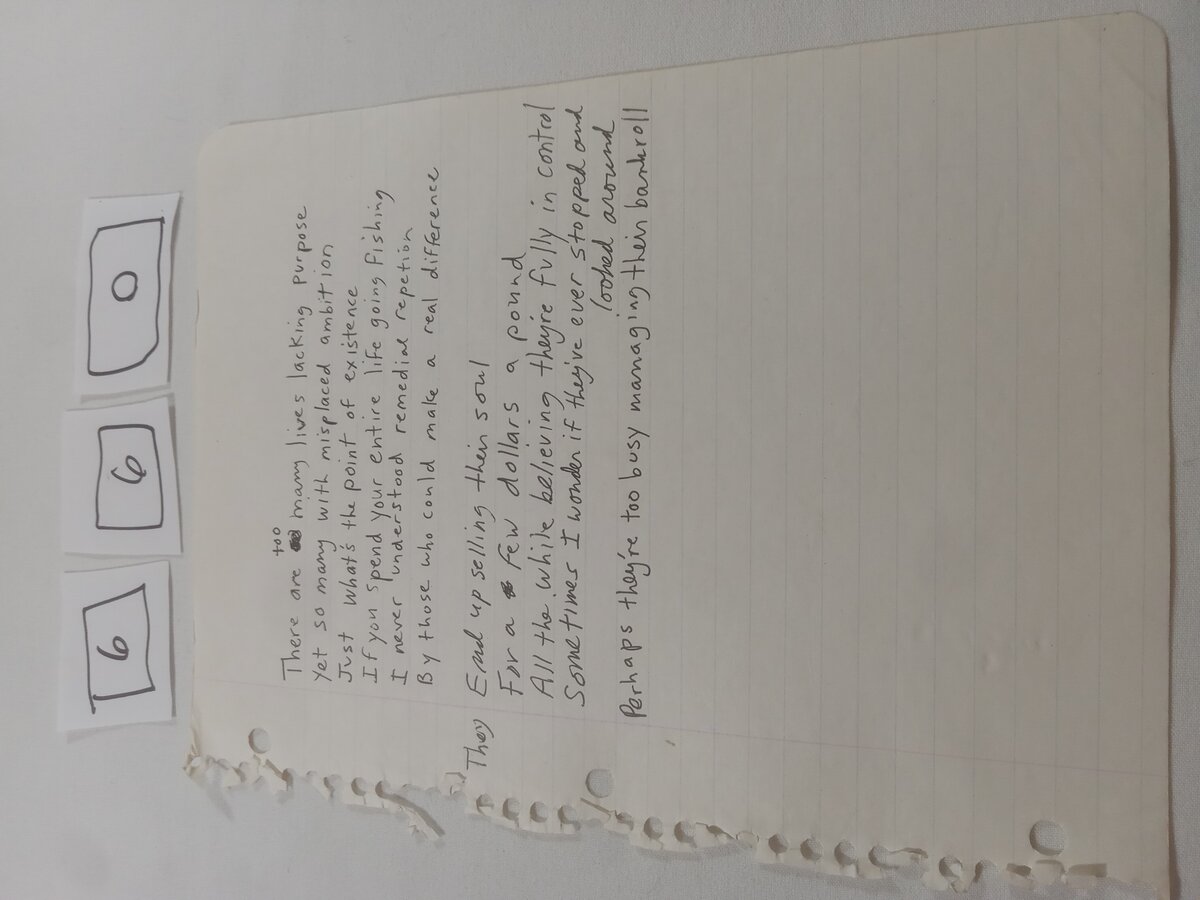 6 6 0
There are too many lives lacking purpose
Yet so many with misplaced ambition
Just what's the point of existence
If you spend your entire life going fishing
I never understood remedial repetion
By those who could make a real difference
They End up selling their soul
For a few dollars a pound
All the while believing they're fully in control
Sometimes I wonder if they've ever stopped and
looked around
Perhaps they're too busy managing their bankroll